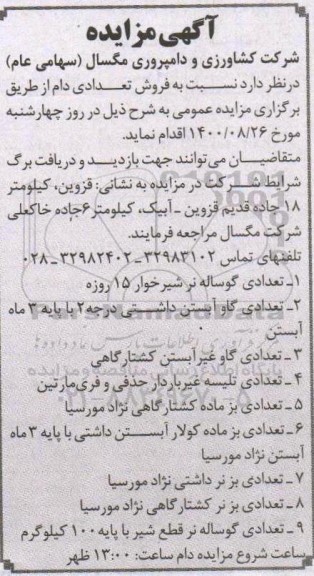 آگهی مزایده
شرکت کشاورزی و دامپروری مگسال (سهامی عام)
درنظر دارد نسبت به فروش تعدادی دام از طریق
برگزاری مزایده عمومی به شرح ذیل در روز چهارشنبه
مورخ ۱۴۰۰/۰۸/۲۶ اقدام نماید.
متقاضیان می‌توانند جهت بازدید و دریافت برگ
شرایط شرکت در مزایده به نشانی: قزوین، کیلومتر
۱۸ جاده قدیم قزوین ـ آبیک، کیلومتر ۶ جاده خاکعلی
شرکت مگسال مراجعه فرمایند.
تلفنهای تماس ۳۲۹۸۳۱۰۲ـ ۳۲۹۸۲۴۰۲ـ ۰۲۸
۱ـ تعدادی گوساله نر شیرخوار ۱۵ روزه
۲ـ تعدادی گاو آبستن داشتی درجه ۲ با پایه ۳ ماه
آبستن
۳ـ تعدادی گاو غیرآبستن کشتارگاهی
۴ـ تعدادی تلیسه غیرباردار حذفی و فری‌مارتین
۵ ـ تعدادی بز ماده کشتارگاهی نژاد مورسیا
۶ ـ تعدادی بز ماده کولار آبستن داشتی با پایه ۳ ماه
آبستن نژاد مورسیا
۷ـ تعدادی بز نر داشتی نژاد مورسیا
۸ ـ تعدادی بز نر کشتارگاهی نژاد مورسیا
۹ـ تعدادی گوساله نر قطع شیر با پایه ۱۰۰ کیلوگرم
ساعت شروع مزایده دام ساعت: ۱۳:۰۰ ظهر